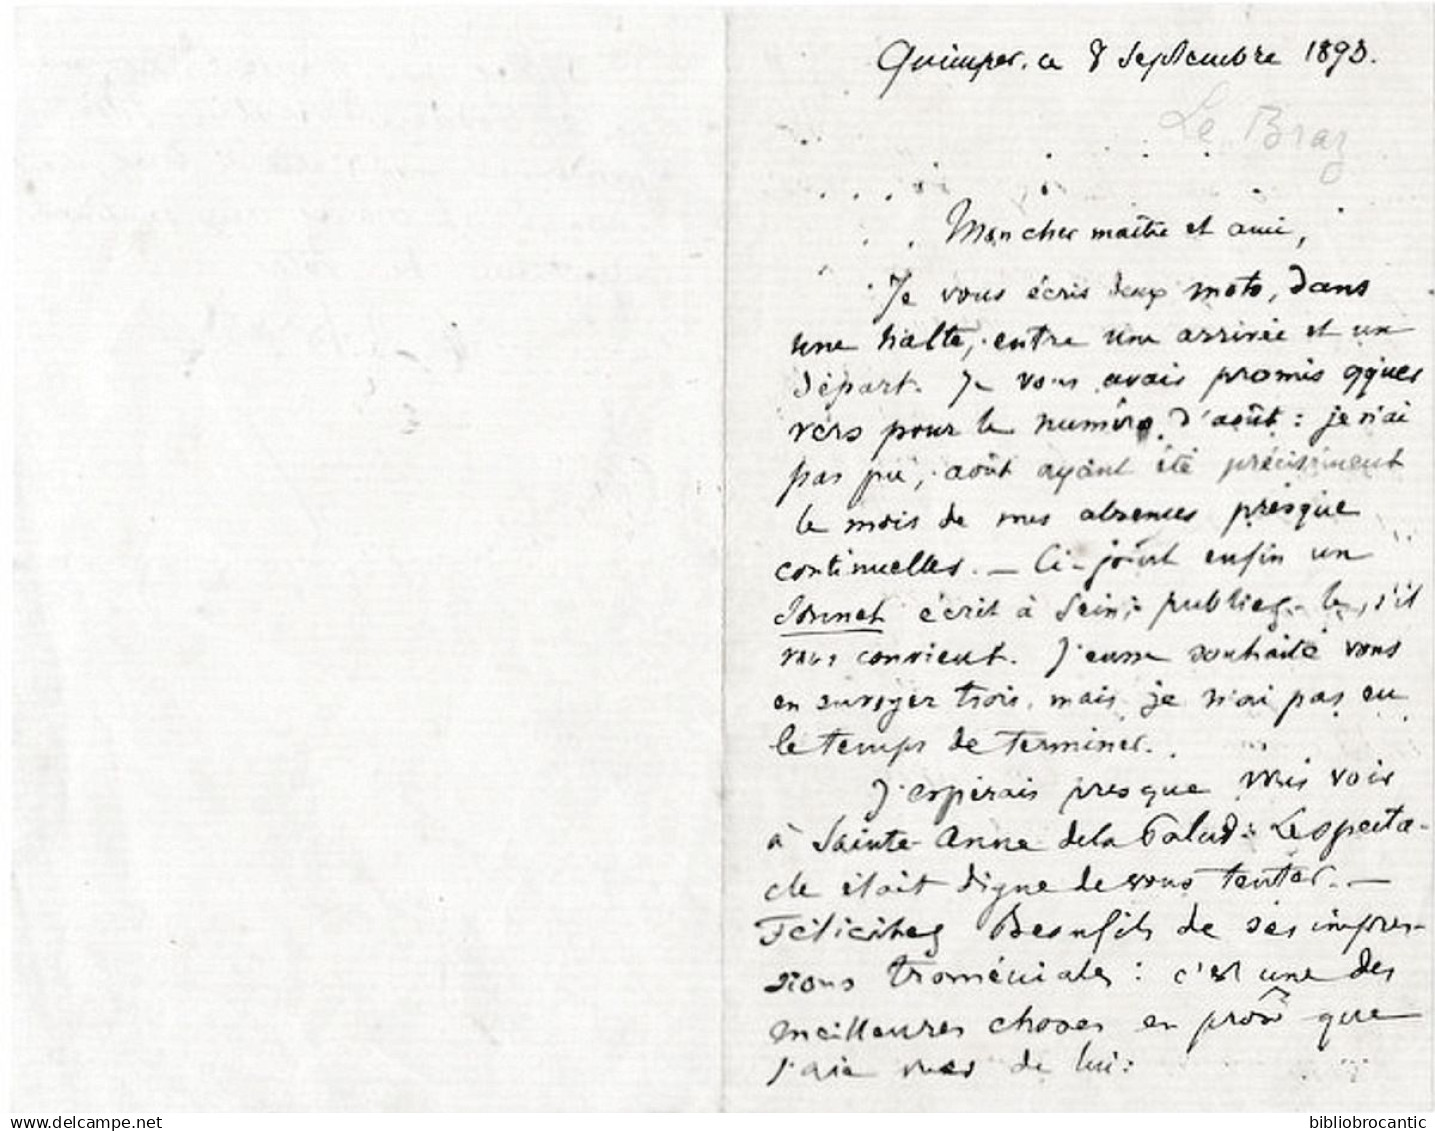 Quimper, ce 8 Septembre 1893.
Le Braz
Mon cher maître et ami,
Je vous écris deux mots, dans
une halte, entre une arrivée et un
départ. Je vous avais promis qques
vers pour le numéro d'août : je n'ai
pas pu, août ayant été précisément
le mois de mes absences presque
continuelles. — Ci-joint enfin un
Sonnet écrit à Sein ; publiez-le, s'il
vous convient. J'eusse souhaité vous
en envoyer trois, mais je n'ai pas eu
le temps de terminer.
J'espérais presque vous voir
à Sainte-Anne de la Palud : Le specta-
cle était digne de vous tenter. —
Félicitez Beaufils de ses impres-
sions troméniales : c'est une des
meilleures choses en prose que
j'aie vues de lui :
bibliobrocantic